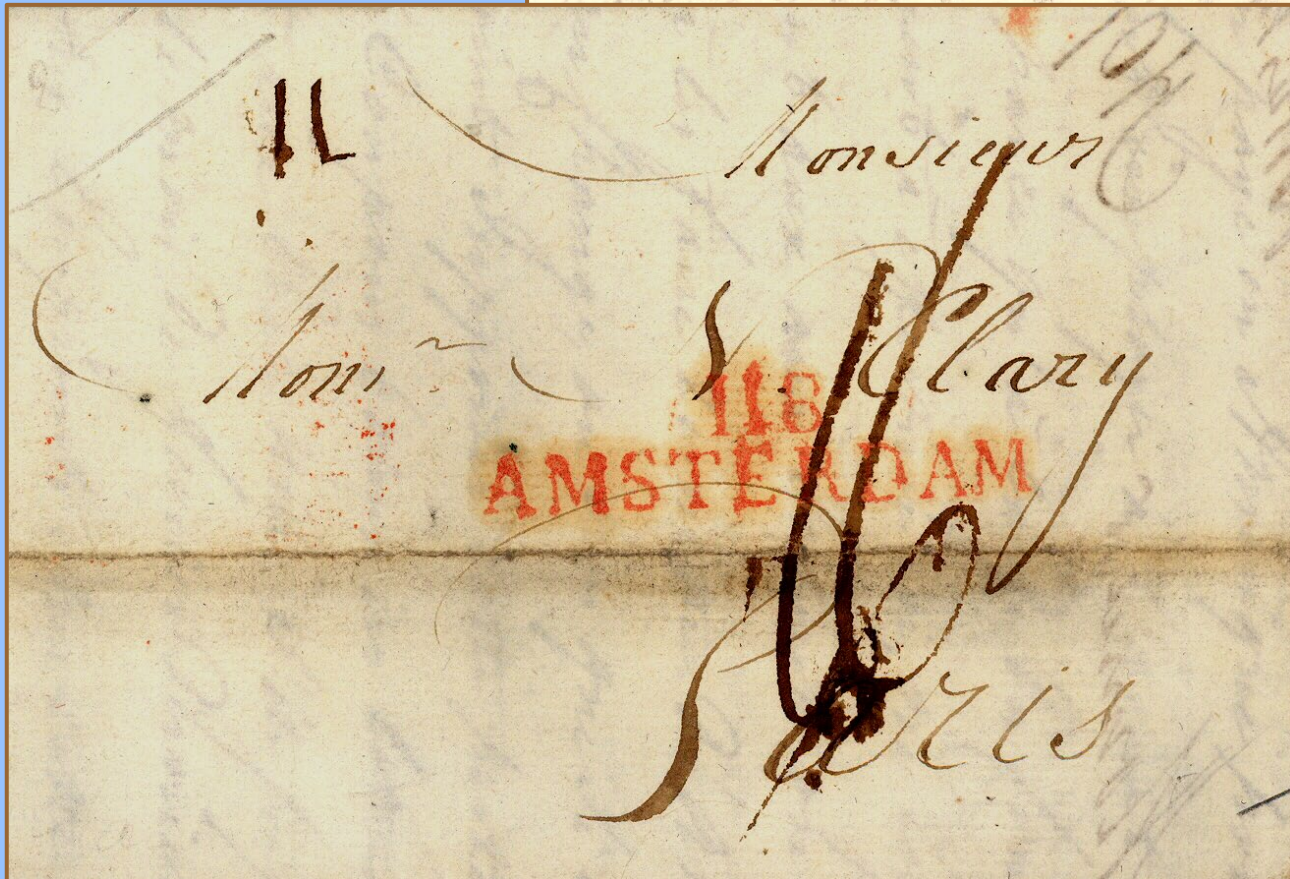 11
Monsieur
Monsr. Clary
118
AMSTERDAM
Paris